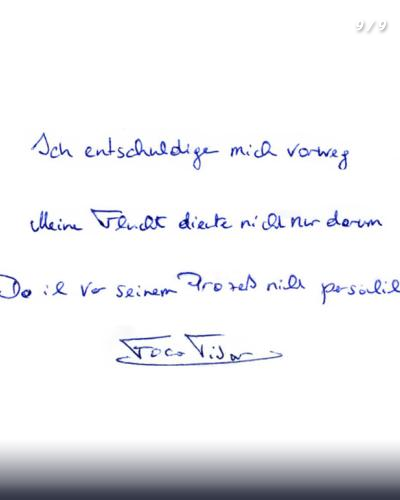 9/9
Ich entschuldige mich vorweg
Meine Flucht diente nicht nur darum
Da ich vor seinem Prozeß nicht persönlich